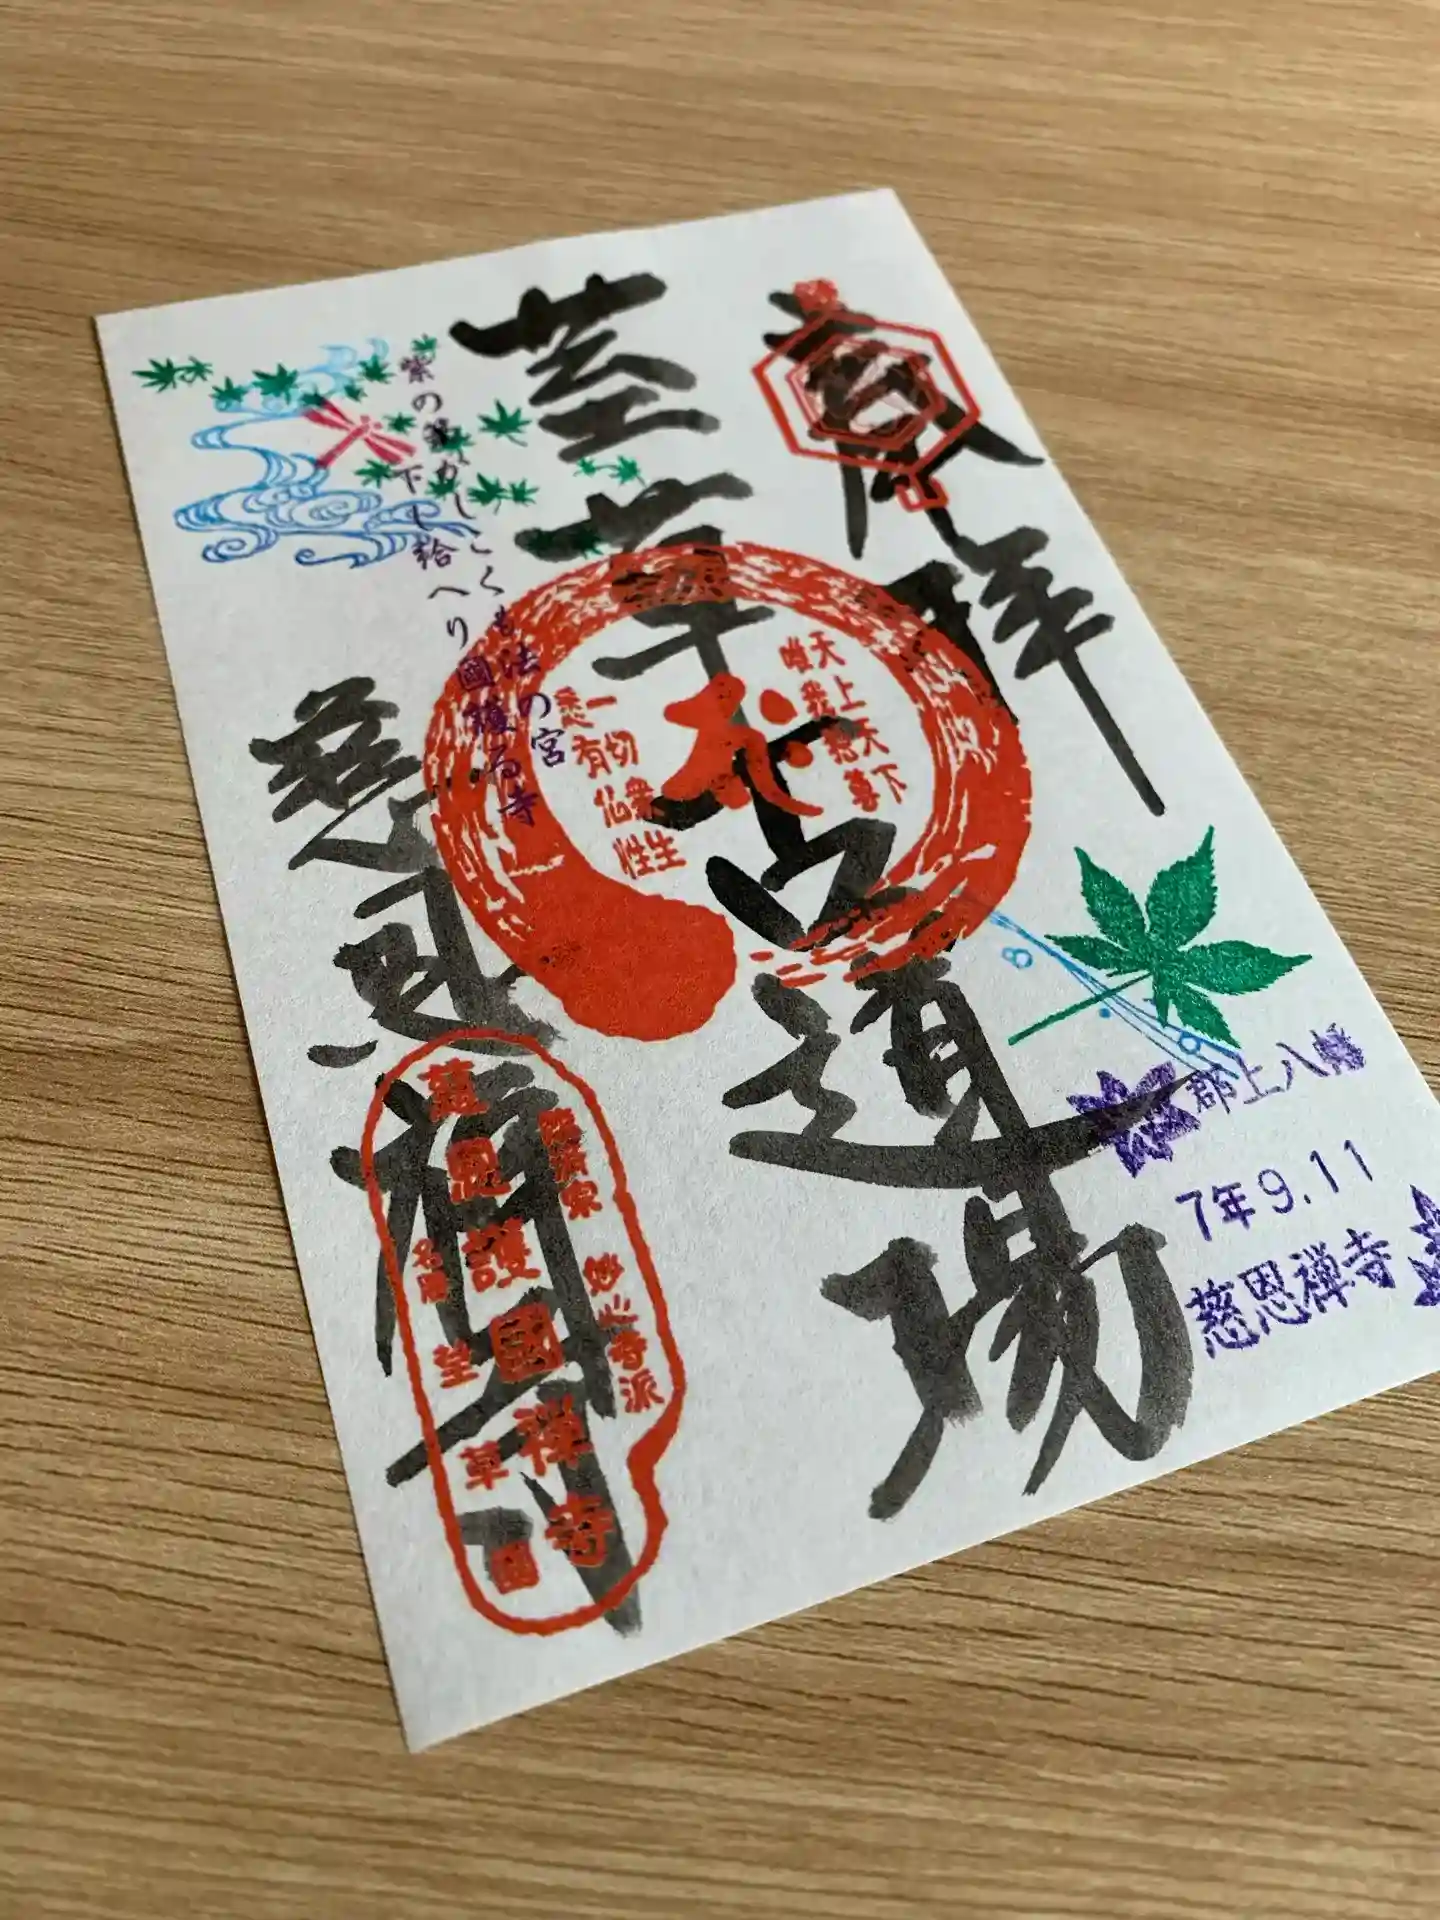 奉拝
荃草古道場
慈恩禅寺
天上天下
唯我独尊
一切衆生
悉有仏性
紫の
かしこくも法の宮
下し給へり國護る寺
臨済宗 妙心寺派
慈恩護國禅寺
名勝 荃草園
郡上八幡
7年9.11
慈恩禅寺